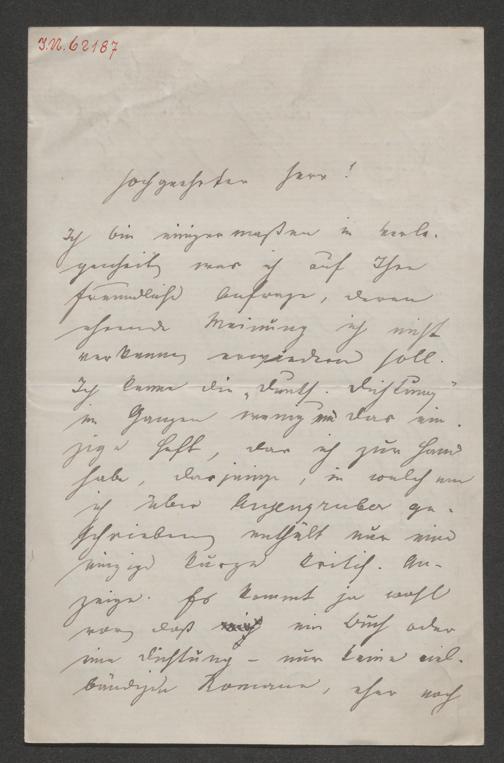 J.N. 62187
Hochgeehrter Herr!
Ich bin einigermaßen in Verle-
genheit, was ich auf Ihre
freundliche Anfrage, deren
ehrende Meinung ich nicht
verkenne, erwiedern soll.
Ich kenne die „Deutsch. Dichtung"
im Ganzen wenig und das ein-
zige Heft, das ich zur Hand
habe, dasjenige, in welchem
ich über Anzengruber ge-
schrieben, enthält nur eine
einzige kurze kritisch. An-
zeige. Es kommt ja wohl
vor, daß ein Buch oder
eine Dichtung – nur keine viel-
bändigen Romane, eher noch